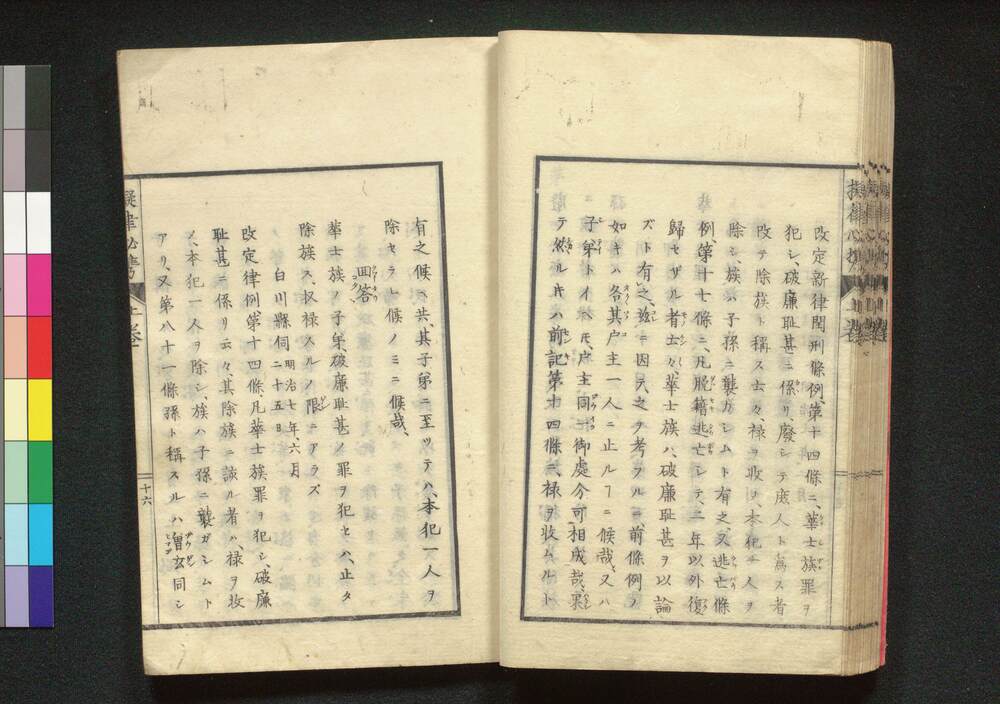 改定新律閏刑條例、第十四條ニ、華士族罪ヲ
犯シ、破廉耻甚ニ係リ、廢シテ庶人ト爲ス者
改テ除族ト稱ス士々、禄ヲ收メ、本犯一人ヲ
除シ、族ハ子孫ニ襲ガシムト有之、又逃亡條
例、第十七條ニ、凡脱籍逃亡シテ、二年以外復
歸セザル者士々、華士族ハ、破廉耻甚ヲ以論
ズト有之、茲ニ因テ之ヲ考フルニ、前條例ノ
如キハ各其戸主一人ニ止ルヿニ候哉、又ハ
子弟トイヘモ、戸主同一御處分可相成哉、果
テ然ルキハ前記第十四條ニ、禄ヲ收ムルト
有之候ヘ共、其子弟ニ至ツテハ、本犯一人ヲ
除セラレ候ノミニ候哉、
回答
華士族ノ子弟破廉耻甚ノ罪ヲ犯セハ、止タ
除族ス、収禄スルノ限ニアラズ
白川縣伺 明治七年、六月二十五日
改定律例第十四條、凡華士族罪ヲ犯シ、破廉
耻甚ニ係リ云々、其除族ニ該ル者ハ、禄ヲ收
メ、本犯一人ヲ除シ、族ハ子孫ニ襲ガシムト
アリ、又第八十一條孫ト稱スルハ曽玄同シ
十六